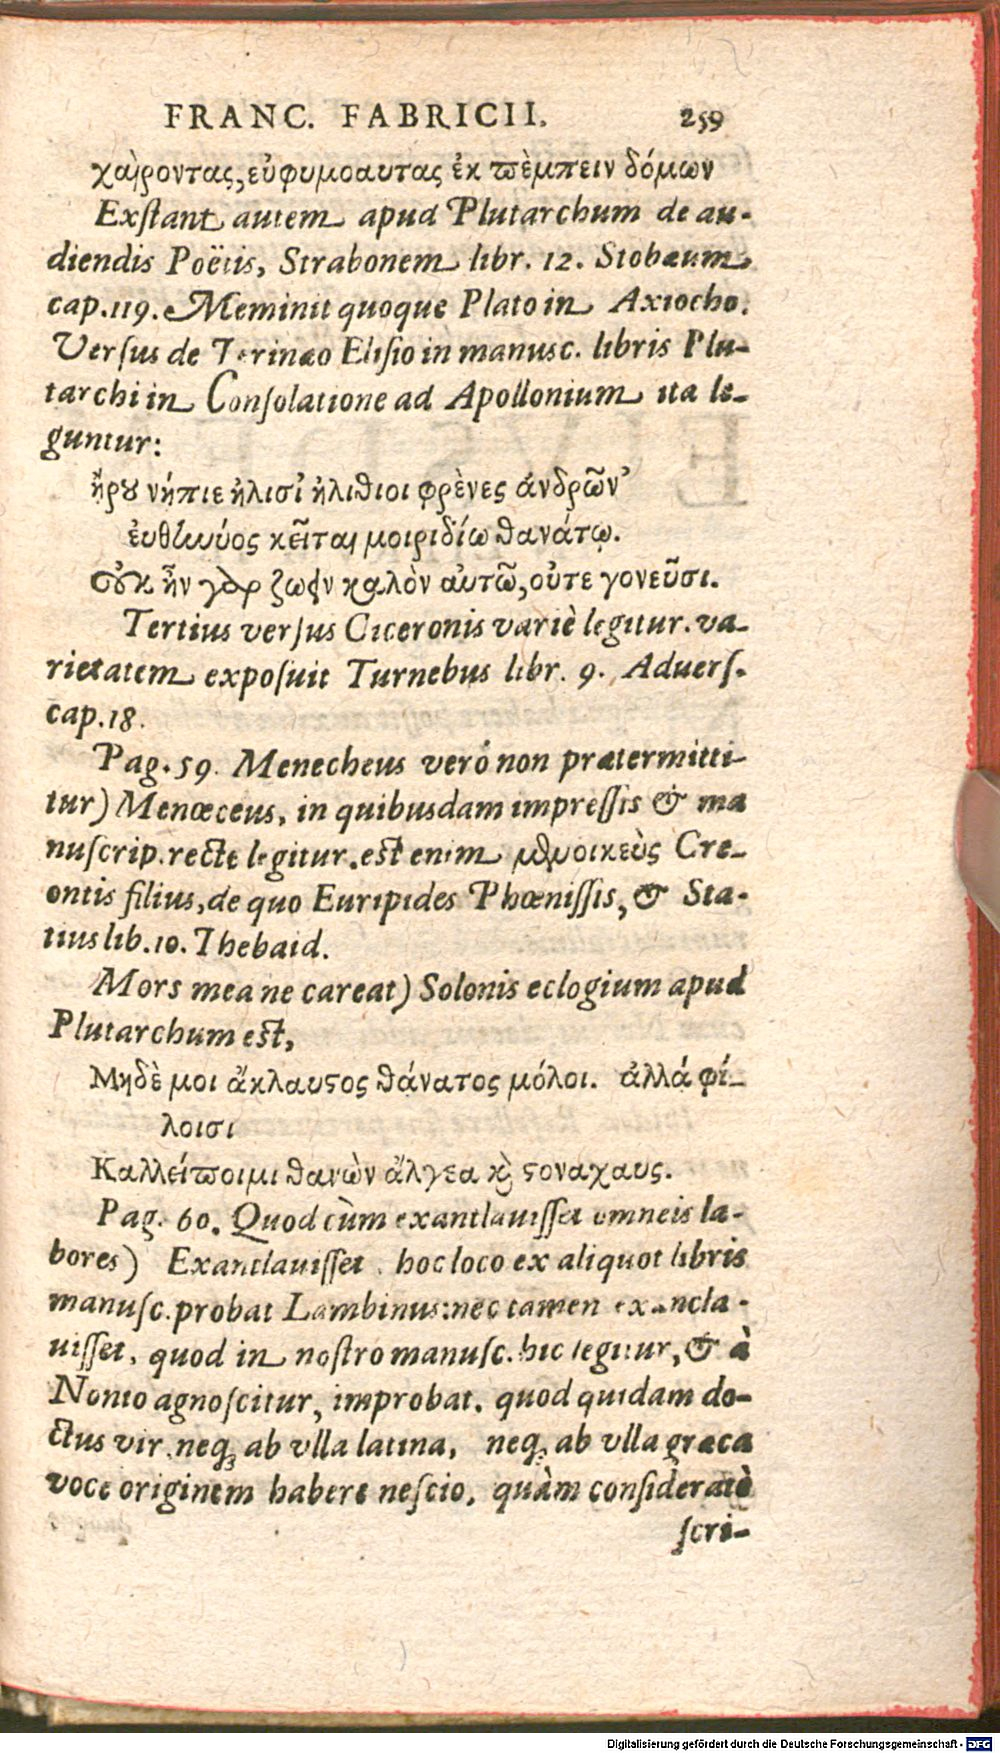 FRANC. FABRICII. 259
χαίροντας, εὐφυμοαυτας ἐκ πὲμπειν δόμων
Exſtant autem apud Plutarchum de au-
diendis Poëtis, Strabonem libr. 12. Stobæum
cap. 119. Meminit quoque Plato in Axiocho.
Verſus de Terinæo Eliſio in manusc. libris Plu-
tarchi in Conſolatione ad Apollonium ita le-
guntur:
ἦρου νήπιε ἠλισἰ ἠλίθιοι φρὲνες ἀνδρῶν
ἐυθιωύος κεῖται μοιριδίω θανάτῳ.
οὐκ ἦν γὰρ ζωὴν καλὸν ἀυτῶ, οὔτε γονεῦσι.
Tertius verſus Ciceronis variè legitur. va-
rietatem expoſuit Turnebus libr. 9. Aduerſ.
cap. 18.
Pag. 59. Menecheus verò non prætermitti-
tur) Menœceus, in quibusdam impreſſis & ma
nuſcrip. recte legitur. est enim μενοικεὺς Cre-
ontis filius, de quo Euripides Phœniſſis, & Sta-
tius lib. 10. Thebaid.
Mors mea ne careat) Solonis eclogium apud
Plutarchum est,
Μηδὲ μοι ἄκλαυςος θάνατος μόλοι. ἀλλά φί-
λοισι
Καλλείποιμι θανὼν ἄλγεα κὶ ςοναχαυς.
Pag. 60. Quod cùm exantlauiſſet omneis la-
bores) Exantlauiſſet, hoc loco ex aliquot libris
manuſc. probat Lambinus: nec tamen exancla-
uiſſet, quod in noſtro manuſc. hic legitur, & à
Nonio agnoſcitur, improbat. quod quidam do-
ctus vir neq; ab vlla latina, neq; ab vlla græca
voce originem habere neſcio, quàm conſideratè
ſcri-
Digitalisierung gefördert durch die Deutsche Forschungsgemeinschaft - DFG